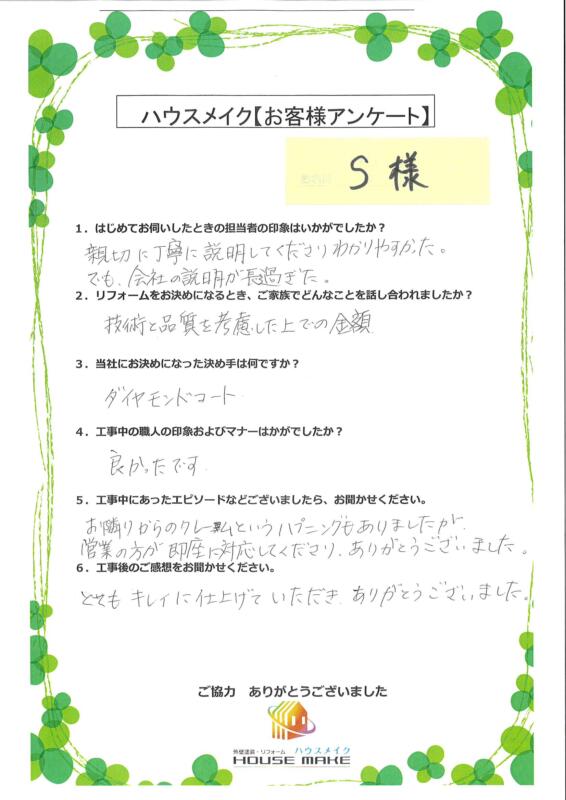 ハウスメイク【お客様アンケート】
S 様
1．はじめてお伺いしたときの担当者の印象はいかがでしたか？
親切に丁寧に説明してくださりわかりやすかった。
でも、会社の説明が長過ぎた。
2．リフォームをお決めになるとき、ご家族でどんなことを話し合われましたか？
技術と品質を考慮した上での金額
3．当社にお決めになった決め手は何ですか？
ダイヤモンドコート
4．工事中の職人の印象およびマナーはかがでしたか？
良かったです
5．工事中にあったエピソードなどございましたら、お聞かせください。
お隣りからのクレームというハプニングもありましたが、
営業の方が即座に対応してくださり、ありがとうございました。
6．工事後のご感想をお聞かせください。
とても キレイに仕上げていただき、ありがとうございました。
ご協力　ありがとうございました
外壁塗装・リフォーム ハウスメイク
HOUSE MAKE